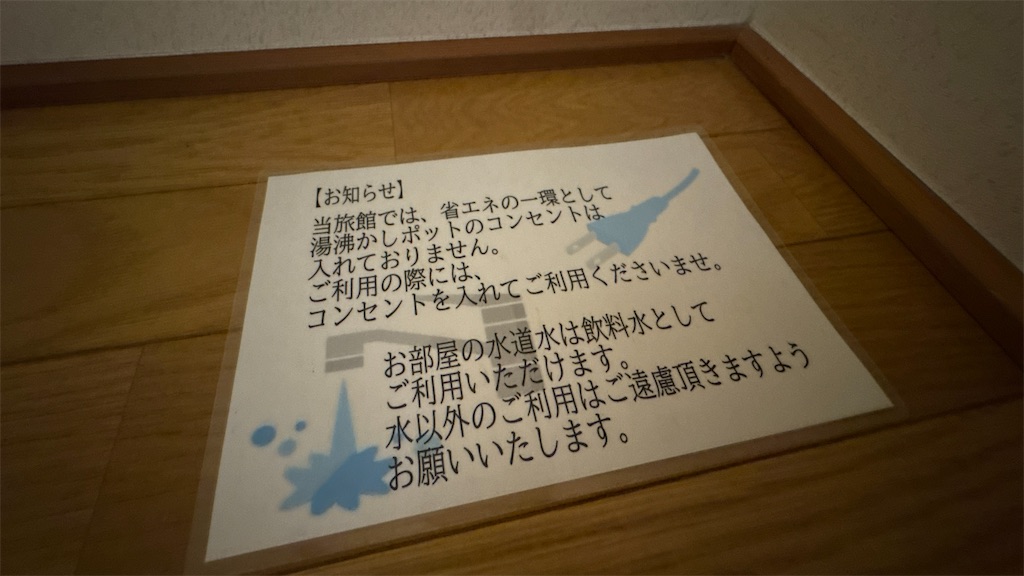 【お知らせ】
当旅館では、省エネの一環として
湯沸かしポットのコンセントは
入れておりません。
ご利用の際には、
コンセントを入れてご利用くださいませ。
お部屋の水道水は飲料水として
ご利用いただけます。
水以外のご利用はご遠慮頂きますよう
お願いいたします。